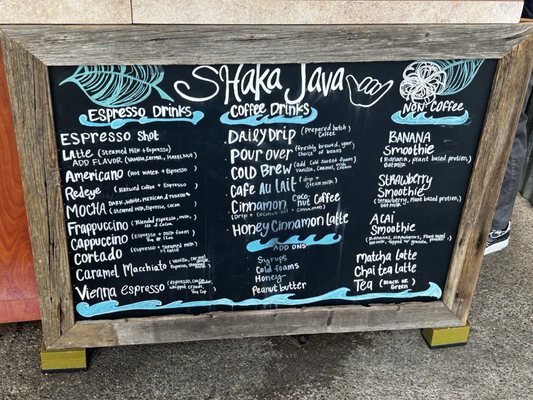 SHaka Java
Espresso Drinks
ESPRESSO SHOT
Latte (steamed milk + Espresso)
ADD FLAVOR (Vanilla, Caramel, Hazelnut)
Americano (Hot water + Espresso)
Redeye (Natural Coffee + Espresso)
MOCHA
(Steamed Milk, Espresso, Cocoa)
Frappuccino (Blended espresso, milk, ice & Cream)
Cappuccino (Espresso + milk)
Cortado (Espresso + Steamed milk)
Caramel Macchiato (Vanilla, Espresso)
Vienna Espresso (Espresso, whipped cream)
Coffee Drinks
DAILY DRIP (Prepared batch Coffee)
POUR OVER (freshly brewed, your choice of beans)
COLD BREW (add Cold foam Vanilla, Caramel)
CAFE Au LAIT (drip + Steam milk)
Cinnamon Coconut Coffee
(Drip + Coconut oil + Cinnamon)
Honey Cinnamon Latte
ADD ONS
Syrups
Cold foams
Honey
Peanut butter
NON Coffee
BANANA
Smoothie
(Banana, plant based protein, oatmilk)
STRAWBERRY
Smoothie
(Strawberry, Plant based protein)
ACAI
Smoothie
topped w/ granola)
Matcha latte
Chai tea latte
TEA (Black or Green)